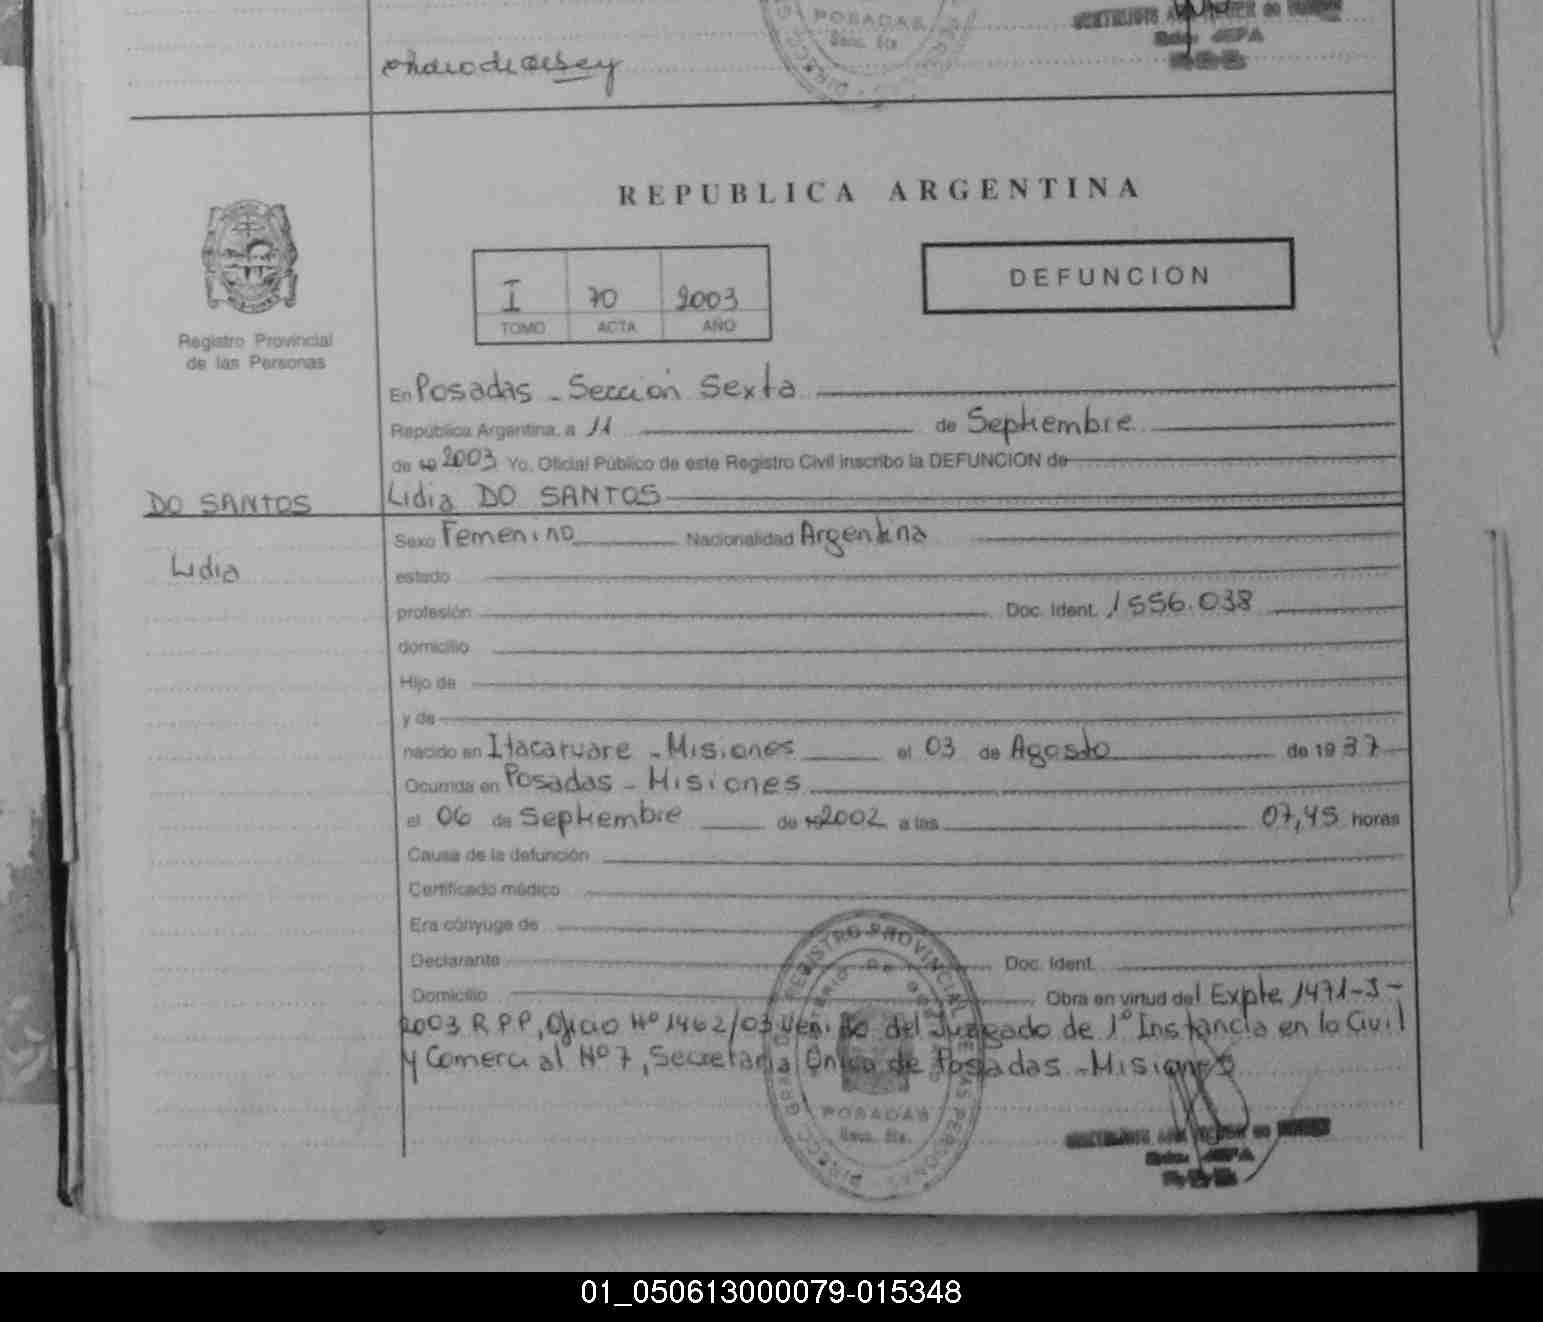 POSADAS
Secc. 6ta.
REPUBLICA ARGENTINA
I 70 2003
TOMO ACTA AÑO
DEFUNCION
Registro Provincial
de las Personas
En Posadas - Sección Sexta
República Argentina, a 11 de Septiembre
de 19 2003 Yo, Oficial Público de este Registro Civil inscribo la DEFUNCION de
DO SANTOS
Lidia
Lidia DO SANTOS
Sexo Femenino Nacionalidad Argentina
estado
profesión Doc. Ident. 1556.038
domicilio
Hijo de
y de
nacido en Itacaruare - Misiones el 03 de Agosto de 1937
Ocurrida en Posadas - Misiones
el 06 de Septiembre de 19 2002 a las 07,45 horas
Causa de la defunción
Certificado médico
Era cónyuge de
Declarante Doc. Ident.
Domicilio Obra en virtud del Expte 1471-J-
2003 R.P.P, Oficio Nº 1462/03 venido del Juzgado de 1º Instancia en lo Civil
y Comercial Nº 7, Secretaria Única de Posadas - Misiones
REGISTRO PROVINCIAL DE LAS PERSONAS
POSADAS
Secc. 6ta.
01_050613000079-015348